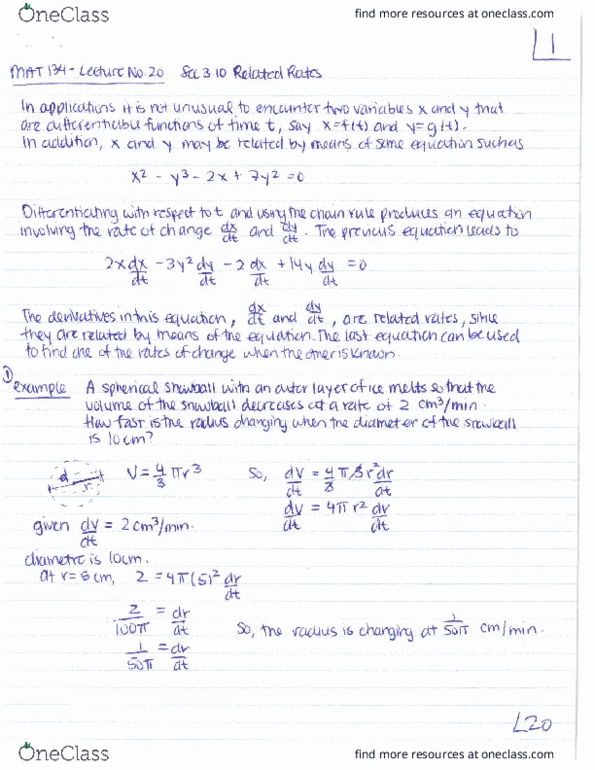 OneClass
find more resources at oneclass.com
L1
MAT 134 - Lecture No. 20 Sec 3.10 Related Rates
In applications it is not unusual to encounter two variables x and y that
are differentiable functions of time t, say x=f(t) and y=g(t).
In addition, x and y may be related by means of some equation such as
x² - y³ - 2x + 7y² = 0
Differentiating with respect to t and using the chain rule produces an equation
involving the rate of change dx/dt and dy/dt. The previous equation leads to
2x dx/dt - 3y² dy/dt - 2 dx/dt + 14y dy/dt = 0
The derivatives in this equation, dx/dt and dy/dt, are related rates, since
they are related by means of the equation. The last equation can be used
to find one of the rates of change when the other is known.
① example A spherical snowball with an outer layer of ice melts so that the
volume of the snowball decreases at a rate of 2 cm³/min.
How fast is the radius changing when the diameter of the snowball
is 10cm?
d r V = 4/3 πr³ So, dV/dt = 4/3 π3r² dr/dt
given dV/dt = 2cm³/min. dV/dt = 4πr² dr/dt
diametre is 10cm.
at r = 5cm, 2 = 4π(5)² dr/dt
2/100π = dr/dt So, the radius is changing at 1/50π cm/min.
1/50π = dr/dt
L20
OneClass
find more resources at oneclass.com